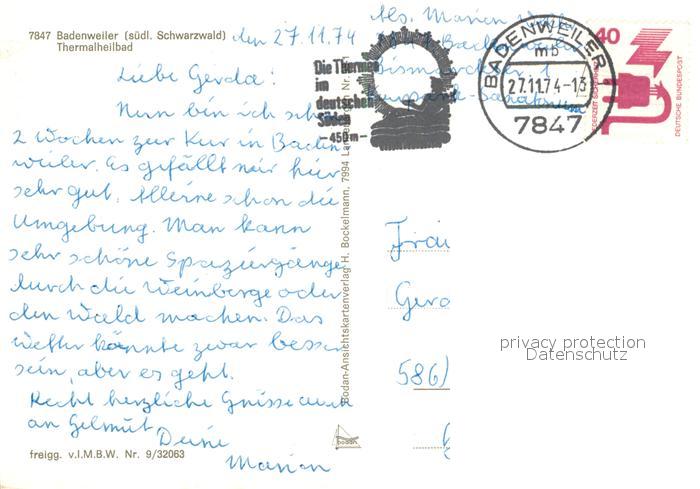 7847 Badenweiler (südl. Schwarzwald)
Thermalheilbad
den 27.11.74
Liebe Gerda!
Nun bin ich sch
2 Wochen zur Kur in Baden
weiler. Es gefällt mir hier
sehr gut. Alleine schon die
Umgebung. Man kann
sehr schöne Spaziergänge
durch die Weinberge oder
den Wald machen. Das
Wetter könnte zwar besser
sein, aber es geht.
Recht herzliche Grüsse auch
an Helmut Deine
Marion
freigg. v.I.M.B.W. Nr. 9/32063
Bodan-Ansichtskartenverlag H. Bockelmann, 7994 La
bodan
Abs. Marion
Die Thermen
im
deutschen
Süden
-450m-
BADENWEILER 1
mb
27.11.74-13
7847
40
JEDERZEIT SICHERHEIT
DEUTSCHE BUNDESPOST
Frau
Gerd
586
privacy protection
Datenschutz